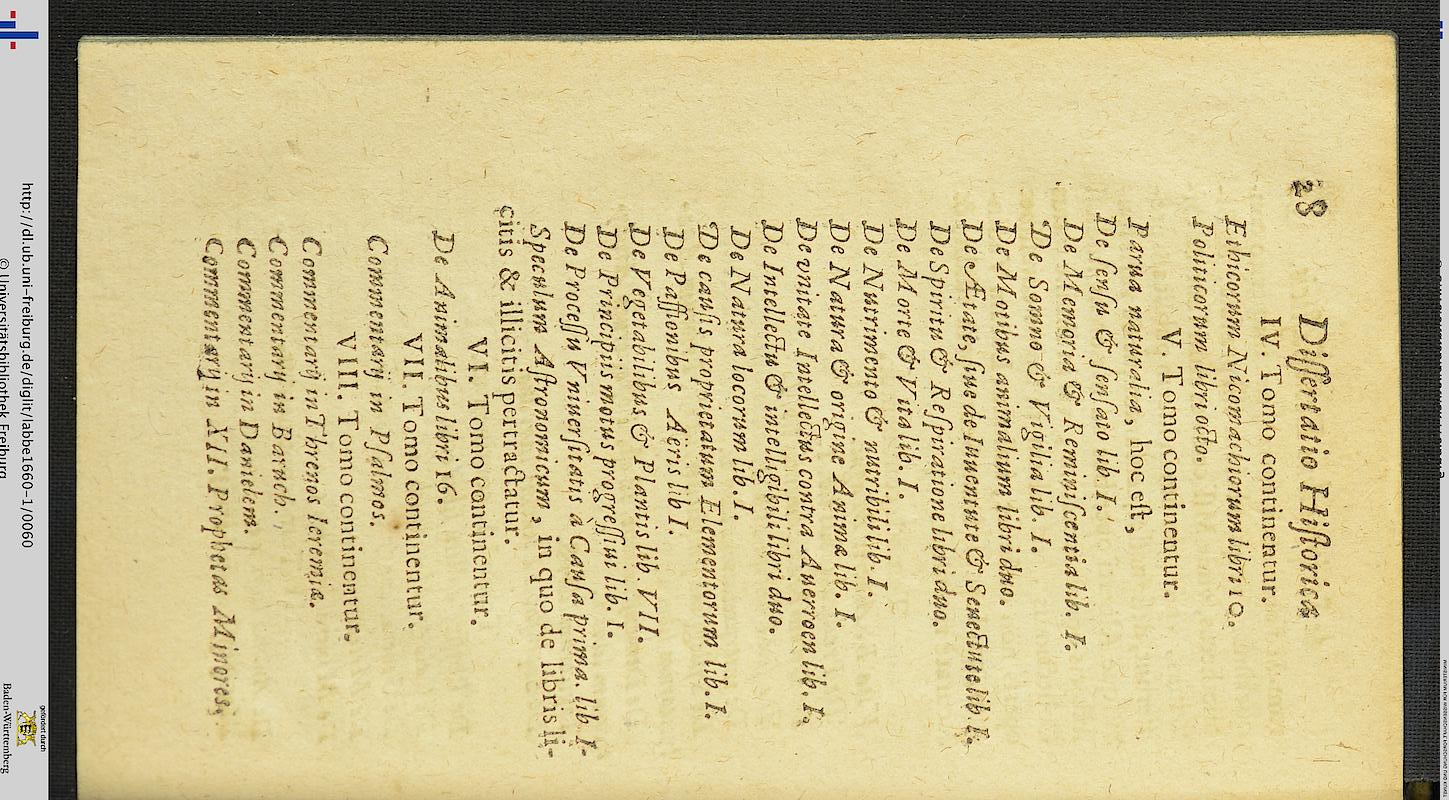 28 Dissertatio Historica
IV. Tomo continentur.
Ethicorum Nicomachiorum libri 10.
Politicorum libri octo.
V. Tomo continentur.
Parua naturalia, hoc est,
De sensu & sensato lib. I.
De Memoria & Reminiscentia lib. I.
De Somno & Vigilia lib. I.
De Motibus animalium libri duo.
De Ætate, siue de Iuuentute & Senectute lib. I.
De Spiritu & Respiratione libri duo.
De Morte & Vita lib. I.
De Nutrimento & nutribili lib. I.
De Natura & origine Animæ lib. I.
De vnitate Intellectus contra Auerroen lib. I.
De Intellectu & intelligibili libri duo.
De Natura locorum lib. I.
De causis proprietatum Elementorum lib. I.
De Passionibus Aëris lib I.
De Vegetabilibus & Plantis lib. VII.
De Principiis motus progressiui lib. I.
De Processu Vniuersitatis à Causa prima. lib. I.
Speculum Astronomicum, in quo de libris li-
citis & illicitis pertractatur.
VI. Tomo continentur.
De Animalibus libri 16.
VII. Tomo continentur.
Commentarij in Psalmos.
VIII. Tomo continentur.
Commentarij in Threnos Ieremiæ.
Commentarij in Baruch.
Commentarij in Danielem.
Commentarij in XII. Prophetas Minores.
http://dl.ub.uni-freiburg.de/diglit/labbe1660-1/0060
© Universitätsbibliothek Freiburg
gefördert durch
Baden-Württemberg